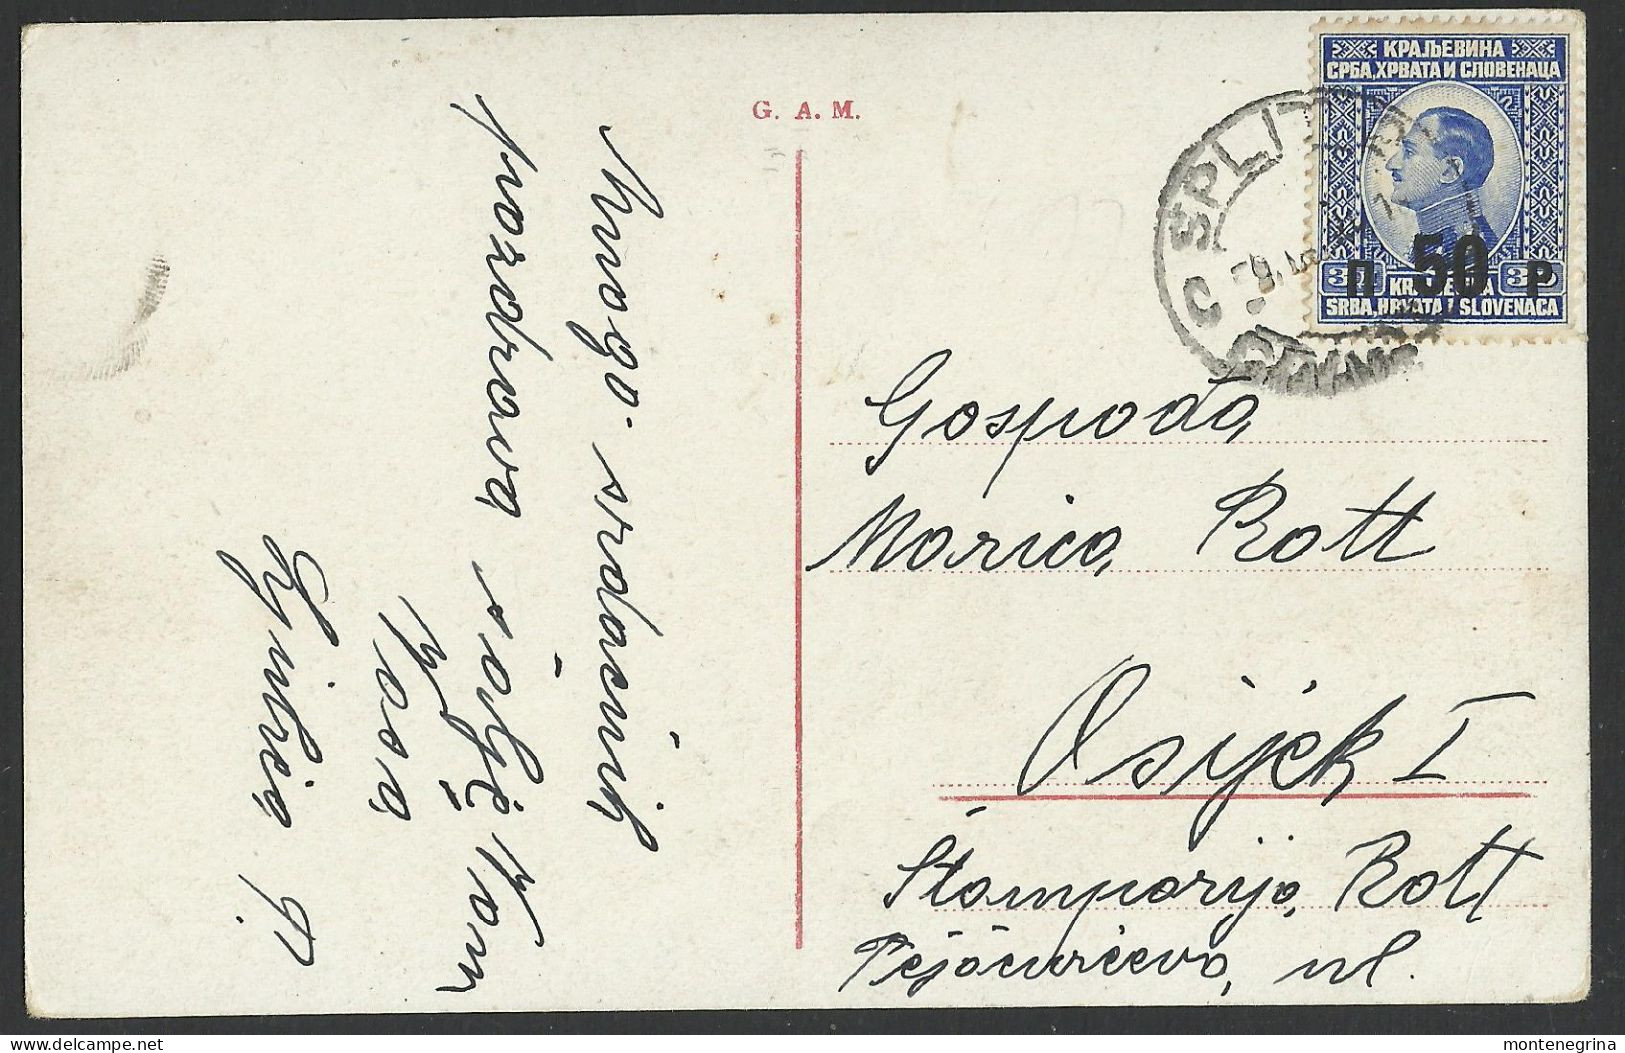 G. A. M.
Mnogo srdačnih
pozdrava šalje Vam
Vasa
Ljubica P.
КРАЉЕВИНА
СРБА, ХРВАТА И СЛОВЕНАЦА
П 50 Р
KRALJEVINA
SRBA, HRVATA I SLOVENACA
SPLIT
Gospođa
Marica Rott
Osijek I
Štamparija Rott
Pejačevićeva ul.
montenegrina